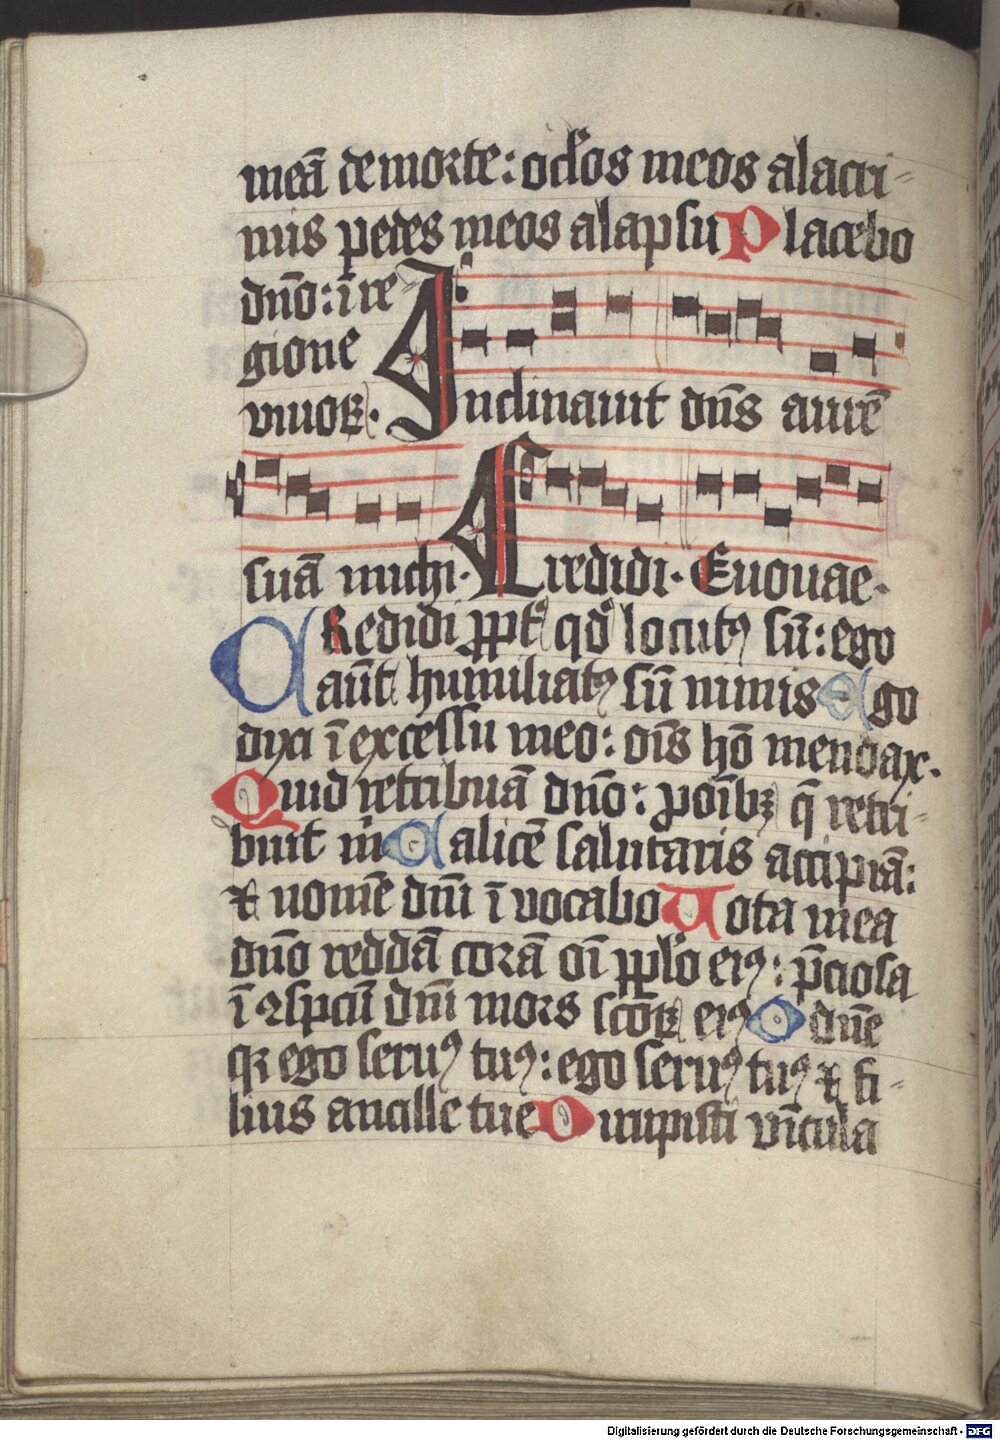 meā de morte: oclo̕s meos a lacri-
mis pedes meos a lapsu Placebo
dn̄o: ī re
gione
viuoꝝ·
Inclinauit dn̄s aurē
suā michi· Credidi· Euouae·
CRedidi ꝓpt̕ qd̕ locutꝰ sū: ego
aūt humiliatꝰ sū nimis Ego
dixi ī excessu meo: oīs hō mendax·
Quid retribuā dn̄o: ꝓ oīb; q̄ retri-
buit m̕ Calicē salutaris accipiā:
⁊ nomē dn̄i īvocabo Uota mea
dn̄o reddā corā oī ppl̕o eiꝰ: p̄ciosa
ī ꝯspcū dn̄i mors scōꝝ eiꝰ O dn̄e
qꝛ ego seruꝰ tuꝰ: ego seruꝰ tuꝰ ⁊ fi-
lius ancille tue Dirupisti vīcula
Digitalisierung gefördert durch die Deutsche Forschungsgemeinschaft - DFG